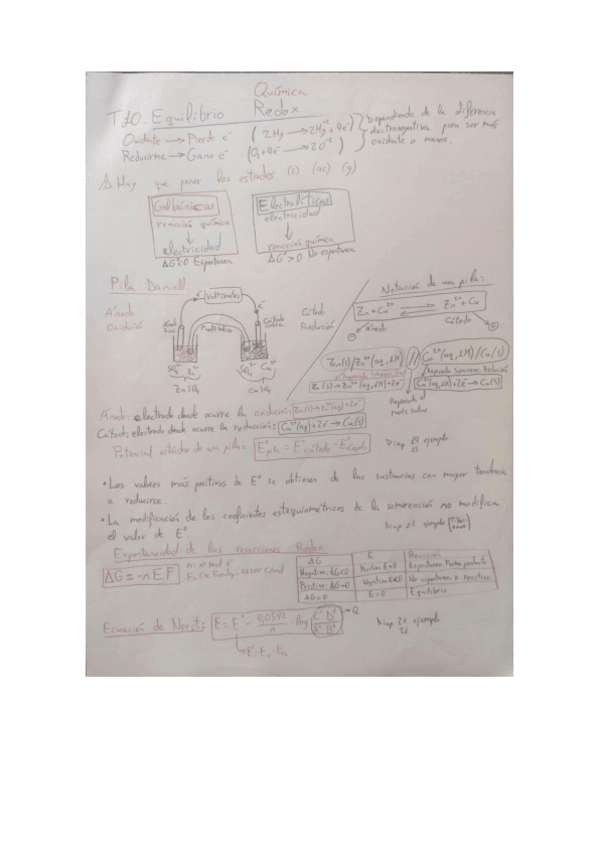 Química
T10. Equilibrio Redox
Oxidante → Pierde e⁻ (2Mg → 2Mg⁺² + 4e⁻)
Reducirse → Gana e⁻ (O₂+4e⁻ → 2O⁻²)
Dependiendo de la diferencia
electronegativa para ser más
oxidante o menos.
⚠ Hay que poner los estados (s) (ac) (g)
Galvánicas
reacción química
↓
electricidad
ΔG<0 Espontanea
Electrolíticas
electricidad
↓
reacción química
ΔG>0 No espontanea
Pila Daniell
Ánodo
Oxidación
Voltímetro
e⁻
Cátodo
Reducción
SO₄²⁻ Zn²⁺
ZnSO₄
SO₄²⁻ Cu²⁺
CuSO₄
Notación de una pila:
Zn + Cu²⁺ ⇌ Zn²⁺ + Cu
Ánodo
Cátodo
Zn(s)/Zn²⁺(aq, 1M) // Cu²⁺(aq, 1M)/Cu(s)
Zn(s)→Zn²⁺(aq, 1M)+2e⁻
Representa Semirreac. Reducción
Cu²⁺(aq, 1M)+2e⁻→Cu(s)
Representa el
puente salino
Ánodo: electrodo donde ocurre la oxidación: Zn(s)→Zn²⁺(aq)+2e⁻
Cátodo: electrodo donde ocurre la reducción: Cu²⁺(aq)+2e⁻→Cu(s)
Potencial estándar de una pila: E°pila = E°cátodo − E°ánodo
Diap ejemplo
• Los valores más positivos de E° se obtienen de las sustancias con mayor tendencia
a reducirse.
• La modificación de los coeficientes estequiométricos de la semirreación no modifica
el valor de E°.
Diap ejemplo
Espontaneidad de las reacciones Redox
ΔG = -n E F
n = nº mol e⁻
ΔG E Reacción
Negativo: ΔG<0 Positivo E>0 Espontanea. Forma producto
Positivo: ΔG>0 Negativo E<0 No espontanea.
ΔG = 0 E = 0 Equilibrio
Ecuación de Nerst: E = E° − 0,0592/n log → Q
Diap 20 ejemplo
21